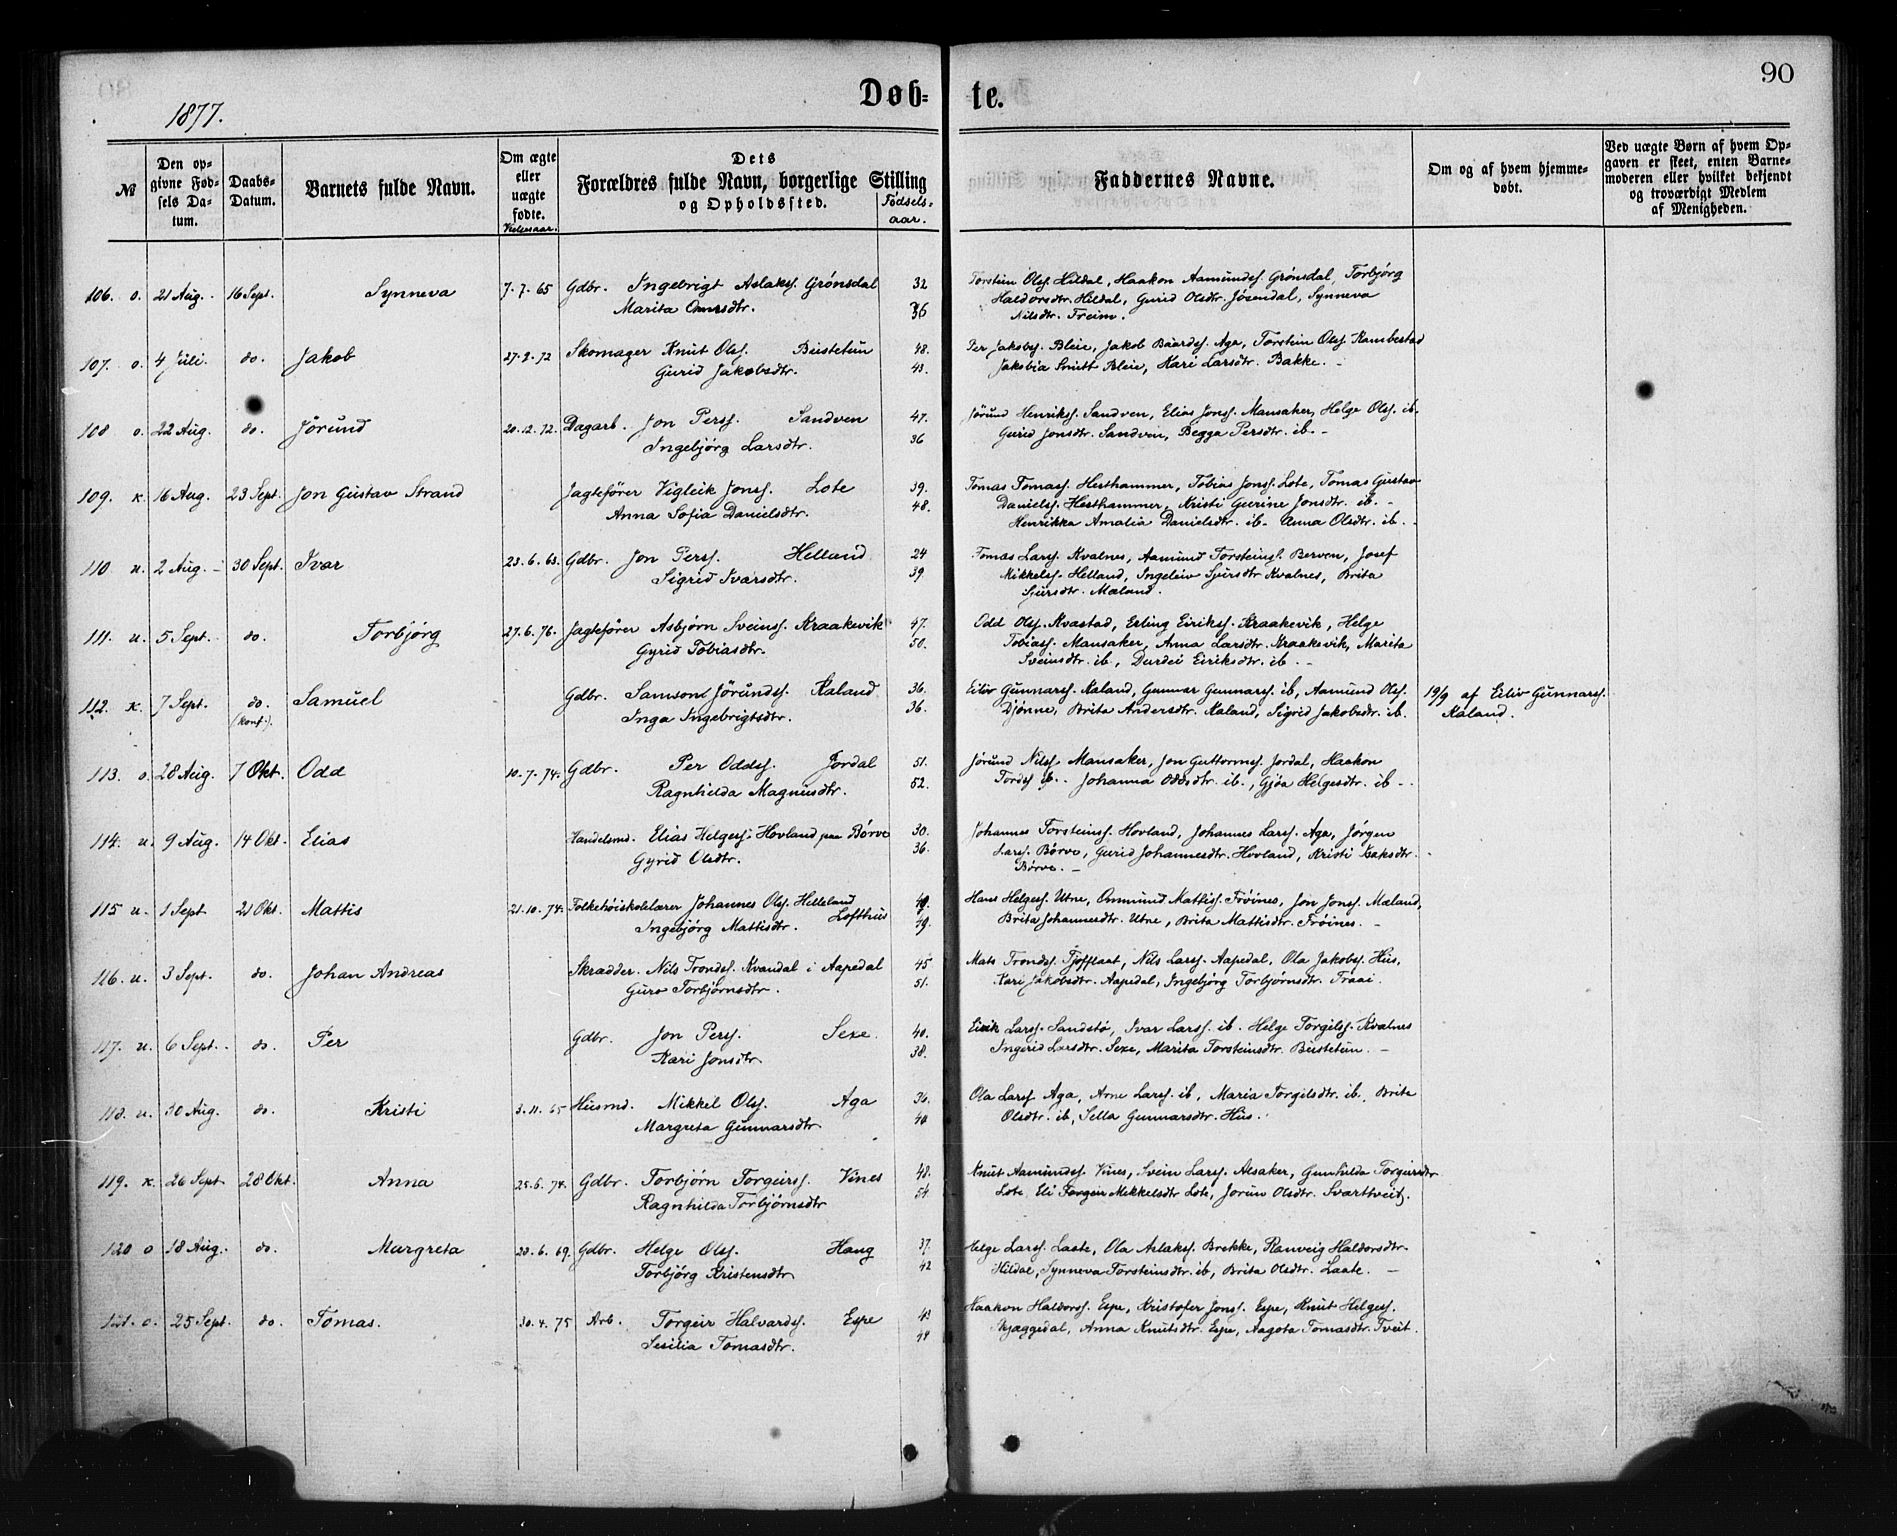 90
1877.
Døb- te.
№ | Den opgivne Fødsels Datum. | Daabs-Datum. | Barnets fulde Navn. | Om ægte eller uægte fødte. Vielsesaar. | Dets Forældres fulde Navn, borgerlige Stilling og Opholdssted. | Fødselsaar. | Faddernes Navne. | Om og af hvem hjemmedøbt. | Ved uægte Børn af hvem Opgaven er skeet, enten Barnemoderen eller hvilket bekjendt og troværdigt Medlem af Menigheden.
106. o. 21 Aug. 16 Sept. Synneva 7.7.65 Gdbr. Ingebrigt Aslaks. Grønsdal 32 Torstein Ols. Hildal, Haakon Aamunds. Grønsdal, Torbjørg
Marita 36 Haldorsdtr. Hildal, Gurid Olsdtr. Jøsendal, Synneva
Nilsdtr. Freim.
107. o. 4 Juli. do. Jakob 27.2.72 Skomager Knut Ols. Bustetun 48. Per Jakobs. Bleie, Jakob Baards. Aga, Torstein Ols. Kambestad
Gurid Jakobsdtr. 43. Jakobia Bleie, Kari Larsdtr. Bakke.
108 o. 22 Aug. do. Jørund 20.12.72. Dagarb. Jon Pers. Sandven 47. Jørund Henriks. Sandven, Elias Jons. Mansaker, Helge Ols. ib.
Ingebjørg Larsdtr. 36 Gurid Jonsdtr. Sandven, Begga Persdtr. ib.
109. k. 16 Aug. 23 Sept. Jon Gustav Strand Jagtefører Vigleik Jons. Lote 39. Tomas Tomass. Hesthammer, Tobias Jons. Lote, Tomas Gustav
Anna Sofia Danielsdtr. 48. Daniels. Hesthammer, Kristi Gurine Jonsdtr. ib.
Henrikka Amalia Danielsdtr. ib. Anna Olsdtr. ib.
110 u. 2 Aug. 30 Sept. Ivar 23.6.63. Gdbr. Jon Pers. Helland 24 Tomas Lars. Kvalnes, Aamund Torsteins. Berven, Josef
Sigrid Ivarsdtr. 39. Mikkels. Helland, Ingeleiv Sjursdtr Kvalnes, Brita
Sjursdtr. Mæland.
111. u. 5 Sept. do. Torbjørg 27.6.76. Jagtefører Asbjørn Sveins. Kraakevik 47. Odd Ols. Kvastad, Erling Eiriks. Kraakevik, Helge
Gyrid Tobiasdtr. 50. Tobias. Mansaker, Anna Larsdtr. Kraakevik, Marita
Sveinsdtr. ib, Durdei Eiriksdtr. ib.
112. k. 7 Sept. do. Samuel Gdbr. Samson Jørunds. Kaland 36. Eiliv Gunnars. Kaland, Gunnar Gunnars. ib, Aamund Ols. 19/9 af Eiliv Gunnars.
(konf.). Inga Ingebrigtsdtr. 36. Djønne, Brita Andersdtr. Kaland, Sigrid Jakobsdtr. ib. Kaland.
113. o. 28 Aug. 7 Okt. Odd 10.7.74. Gdbr. Per Odds. Jordal 51. Jørund Nils. Mansaker, Jon Guttorms. Jordal, Haakon
Ragnhilda Magnusdtr. 52. Tords. ib. Johanna Oddsdtr. ib., Gjøa Helgesdtr. ib
114. u. 9 Aug. 14 Okt. Elias Handelsmd. Elias Helges. Hovland paa Børve 30. Johannes Torsteins. Hovland, Johannes Lars. Aga, Jørgen
Gyrid Olsdtr. 36. Lars. Børve, Gurid Johannesdtr. Hovland, Kristi Isaksdtr.
Børve.
115 u. 1 Sept 21 Okt. Mattis 21.10.74. Folkehøiskolelærer Johannes Ols. Helleland 49. Hans Helges. Utne, Ommund Mattis. Frøines, Jon Jons. Mæland,
Ingebjørg Mattisdtr. Lofthus 49. Brita Johannesdtr. Utne, Brita Mattisdtr. Frøines.
116. u. 3 Sept. do. Johan Andreas Skrædder. Nils Tronds. Kvandal i Aapedal 45 Mats Tronds. Tjoflaat, Nils Lars. Aapedal, Ola Jakobs. Hus,
Guro Torbjørnsdtr. 51. Kari Jakobsdtr. Aapedal, Ingebjørg Torbjørnsdtr. Fraai.
117. u. 6 Sept. do. Per Gdbr. Jon Pers. Sexe. 40. Eirik Lars. Sandstø, Ivar Lars. ib. Helge Torgils. Kvalnes
Kari Jonsdtr. 38. Ingerid Larsdtr. Sexe, Marita Torsteinsdtr. Bustetun.
118. u. 30 Aug. do. Kristi 3.11.65 Husmd. Mikkel Ols. Aga 36. Ola Lars. Aga, Arne Lars. ib, Maria Torgilsdtr. ib, Brita
Margreta Gunnarsdtr 40 Olsdtr. ib, Sella Gunnarsdtr. Hus.
119. k. 26 Sept 28 Okt. Anna 25.6.74. Gdbr. Torbjørn Torgeirs. Vines 48. Knut Aamunds. Vines, Svein Lars. Alsaker, Gunhilda Torgeirsdtr
Ragnhilda Torbjørnsdtr 54. Lote, Eli Mikkelsdtr Lote, Jorun Olsdtr. Svarttveit.
120 o 18 Aug. do. Margreta 20.6.69. Gdbr. Helge Ols. Haug 37. Helge Lars. Laate, Ola Aslaks. Brekke, Ranveig Haldorsdtr.
Torbjørg Kristensdtr 42 Hildal, Synneva Torsteinsdtr. ib, Brita Olsdtr. Laate.
121. o. 25 Sept. do. Tomas. 30.4.75 Arb. Torgeir Halvards. Espe 43 Haakon Haldors. Espe, Kristofer Jons. Espe, Knut Helges.
Sesilia Tomasdtr. 44 Skjæggedal, Anna Knutsdtr. Espe, Aagota Tomasdtr. Tveit.